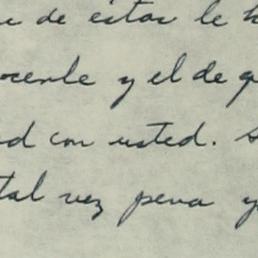 de estar le
ocerle y el de
d con usted.
tal vez pena y